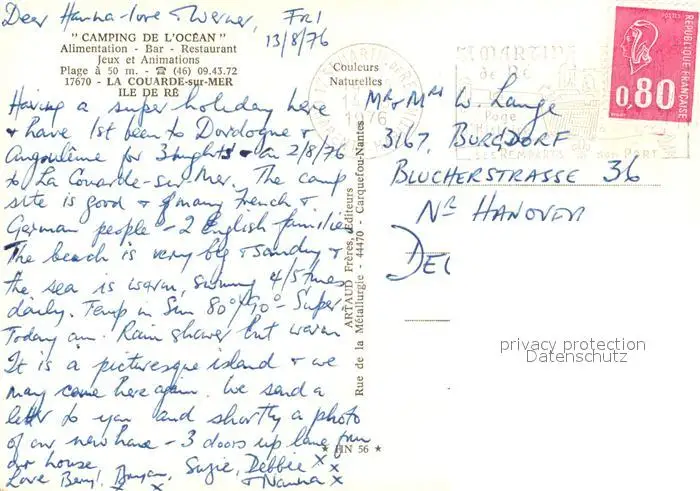 Dear Hanna-lore & Werner, FRI
13/8/76
" CAMPING DE L'OCÉAN "
Alimentation - Bar - Restaurant
Jeux et Animations
Plage à 50 m. - ☎ (46) 09.43.72
17670 - LA COUARDE-sur-MER
ILE DE RÉ
Having a super holiday here
& have 1st been to Dordogne &
Angoulême for 3 nights - on 2/8/76
to La Couarde-sur-Mer. The camp
site is good & many French &
German people - 2 English families
The beach is very big & sandy &
the sea is warm, swimming 4/5 times
daily. Temp in Sun 80°/90° - Super
Today am. Rain shower but warm
It is a picturesque island & we
may come here again. We send a
letter to you and shortly a photo
of our new house - 3 doors up lane from
our house
Love Beryl, Bryan, Suzie, Debbie x x
& Nanna x
Couleurs
Naturelles
ARTAUD Frères, Éditeurs
Rue de la Métallurgie - 44470 - Carquefou-Nantes
★ HN 56 ★
1976
ST MARTIN
de Ré
SES REMPARTS son PORT
POSTES
RÉPUBLIQUE FRANÇAISE
0,80
Mr & Mrs W. Lange
3167, BURGDORF
BLUCHERSTRASSE 36
Nr HANOVER
DEU
privacy protection
Datenschutz